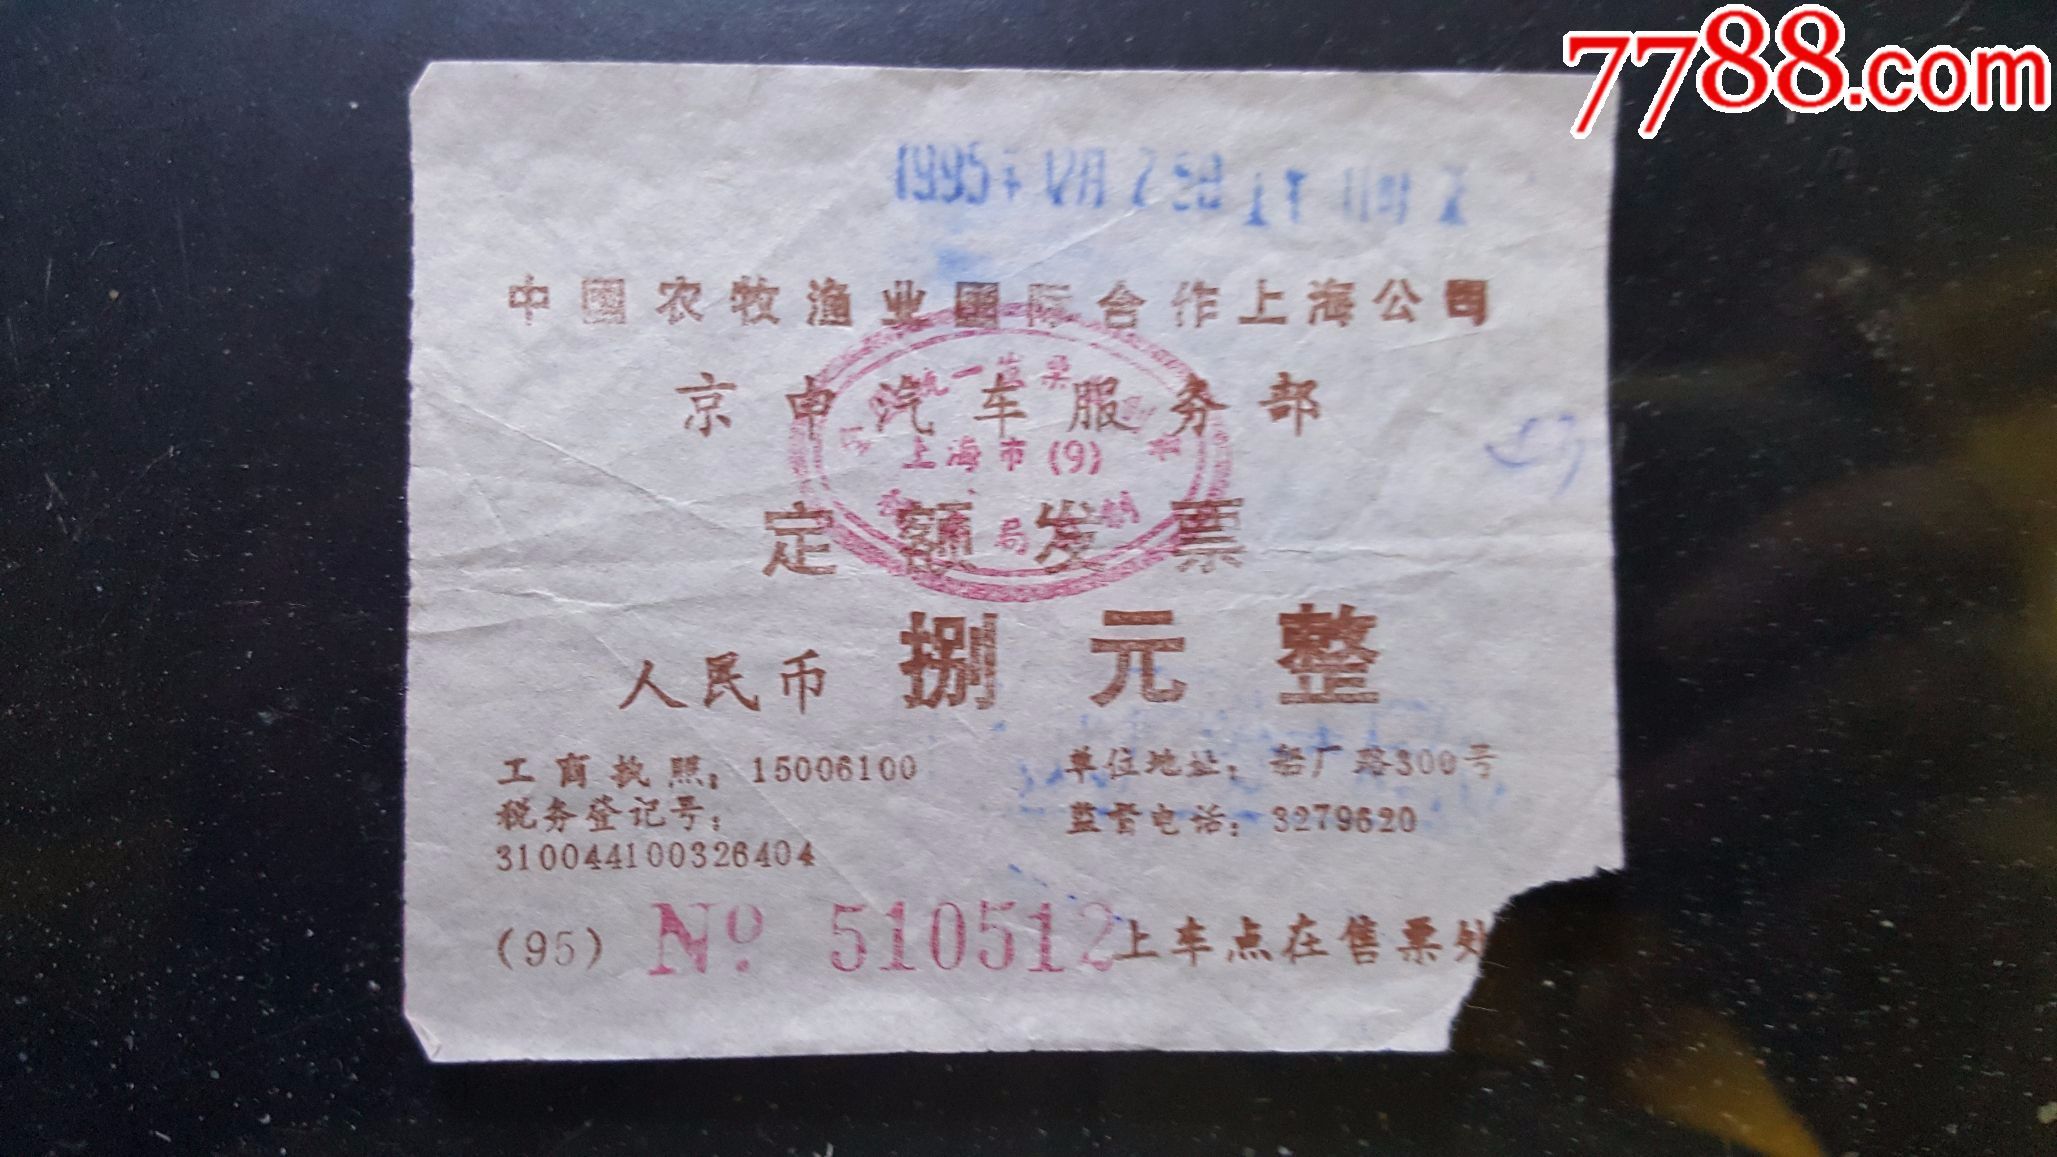 7788.com
1995年12月25日
中国农牧渔业国际合作上海公司
京申汽车服务部
统一发票
上海市(9)
局
定额发票
人民币 捌元整
工商执照：15006100 单位地址：船厂路300号
税务登记号： 监督电话：3279620
310044100326404
(95) № 510512 上车点在售票处